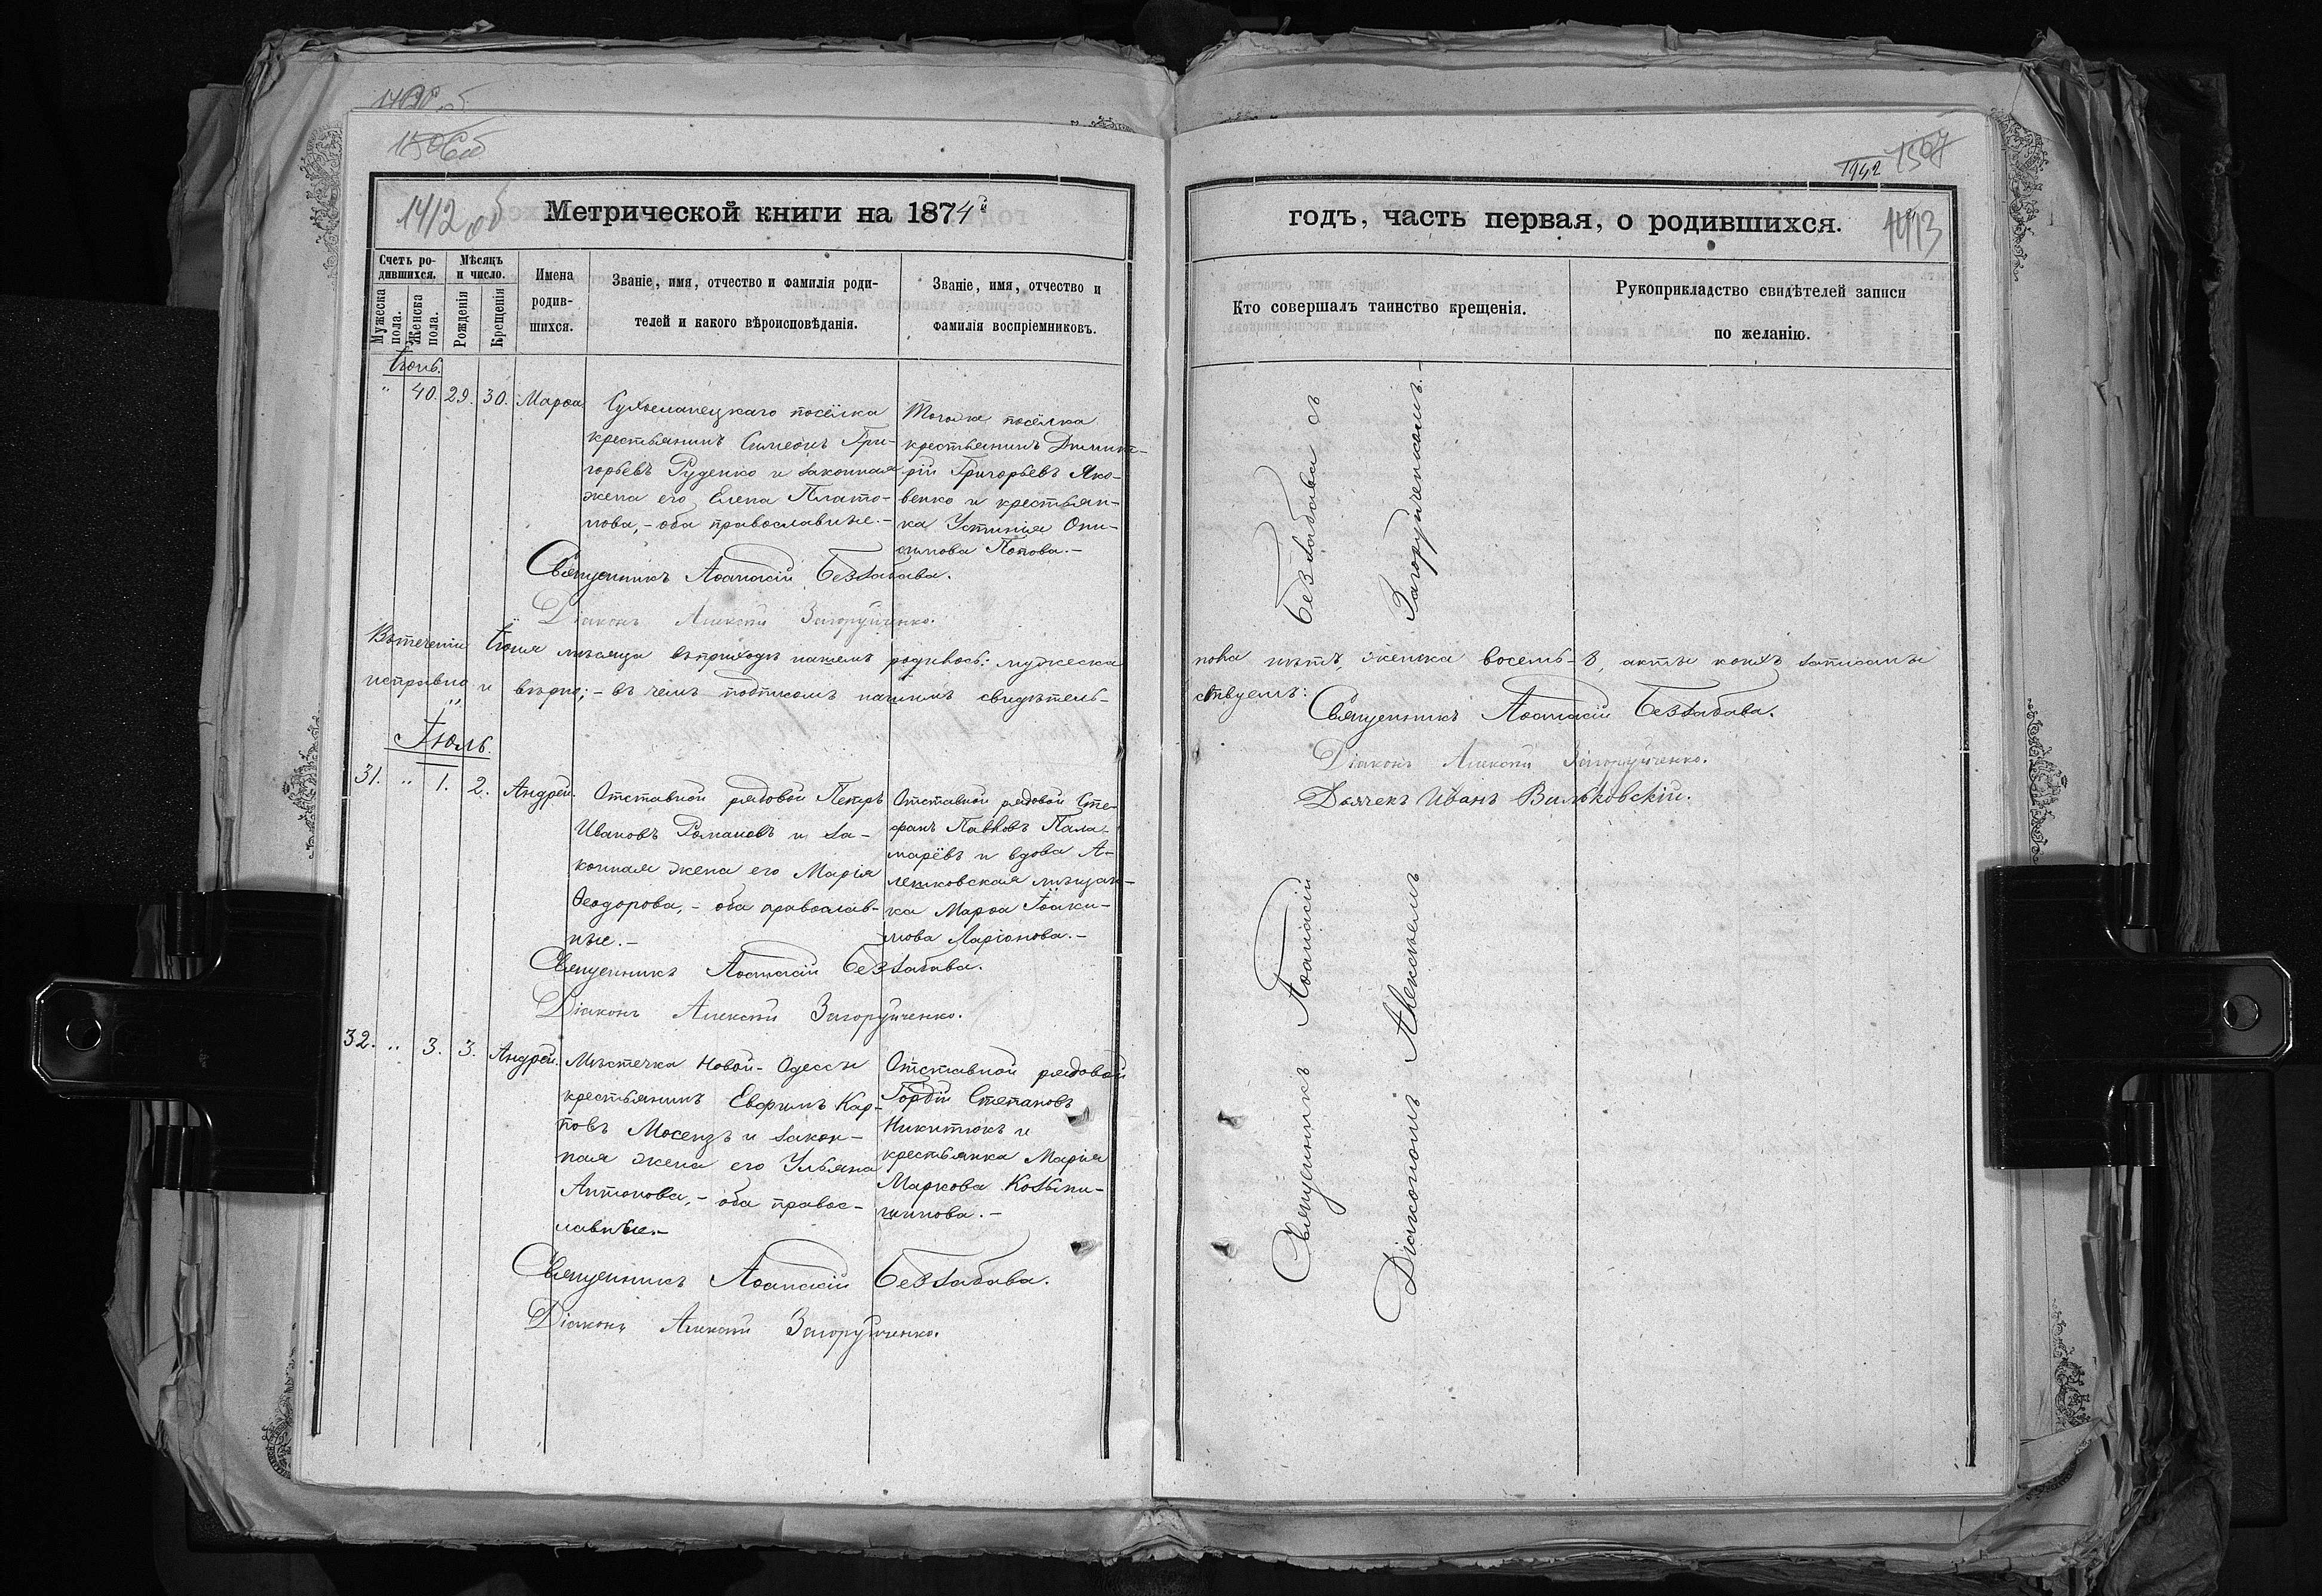 1412 об
Метрической книги на 1874й
Счетъ ро-
дившихся.
Мужеска
пола.
Женска
пола.
Мѣсяцъ
и число.
Рожденія
Крещенія
Имена
родив-
шихся.
Званіе, имя, отчество и фамилія роди-
телей и какого вѣроисповѣданія.
Званіе, имя, отчество и
фамилія воспріемниковъ.
Іюнь.
" 40. 29. 30. Марѳа
Сухоеланецкаго посёлка
крестьянинъ Симеонъ Гри-
горьевъ Руденко и законная
жена его Елена Плато-
нова, - оба православные. -
Тогоже посёлка
крестьянинъ Димит-
рій Григорьевъ Яко-
венко и крестьян-
ка Устинія Они-
симова Попова. -
Священникъ Аѳанасій Беззабава.
Діаконъ Алексѣй Загоруйченко.
Втеченіи Іюня мѣсяца въприходѣ нашемъ родилось: мужеска
исправно и вѣрно; - въ чемъ подписомъ нашимъ свидѣтель-
Іюль.
31. " 1. 2. Андрей.
Отставной рядовой Петръ
Ивановъ Романовъ и за-
конная жена его Марія
Ѳеодорова, - оба православ-
ные. -
Отставной рядовой Сте-
фанъ Павловъ Пала-
марёвъ и вдова А-
лешковская мѣщан-
ка Марѳа Іоаки-
мова Ларіонова. -
Священникъ Аѳанасій Беззабава.
Діаконъ Алексѣй Загоруйченко.
32. " 3. 3. Андрей.
Мѣстечка Новой-Одессы
крестьянинъ Евфимъ Кар-
повъ Мосензъ и закон-
ная жена его Ульяна
Антонова, - оба правос-
лавные. -
Отставной рядовой
Гордій Степановъ
Никитюкъ и
крестьянка Марія
Маркова Козьми-
шинова. -
Священникъ Аѳанасій Беззабава.
Діаконъ Алексѣй Загоруйченко.
1942 1507
годъ, часть первая, о родившихся.
1413
Кто совершалъ таинство крещенія.
Рукоприкладство свидѣтелей записи
по желанію.
Священникъ Аѳанасій Беззабава съ
Діакономъ Алексѣемъ Загоруйченкомъ. -
пола пять, женска восемь-8, акты коихъ записаны
ствуемъ:
Священникъ Аѳанасій Беззабава.
Діаконъ Алексѣй Загоруйченко.
Дьячекъ Иванъ Вильковскій.